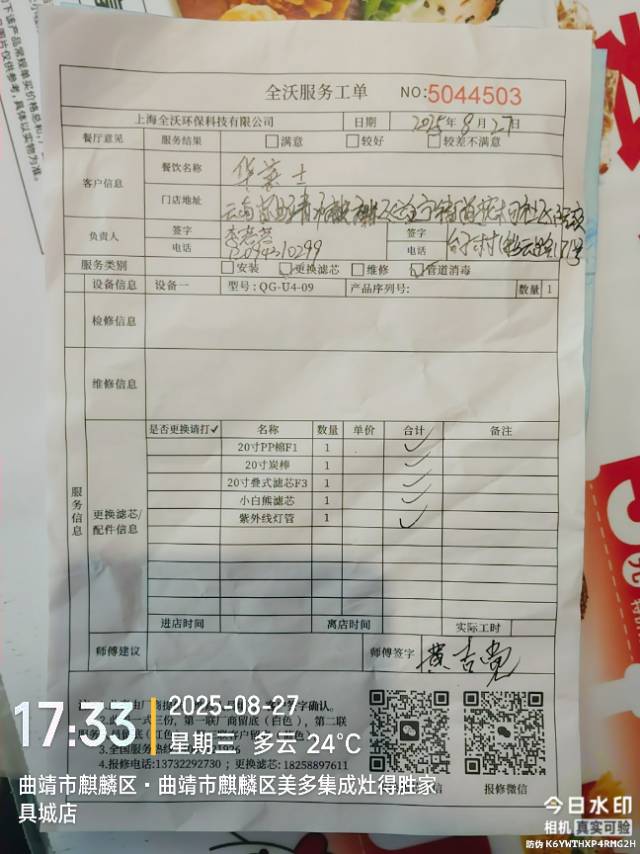 全沃服务工单 NO:5044503
上海全沃环保科技有限公司 日期 2025年8月27日
餐厅意见 服务结果 □满意 □较好 □较差不满意
客户信息 餐饮名称 华莱士
门店地址 云南省曲靖市麒麟区
负责人 签字 签字
电话 电话
服务类别 □安装 □更换滤芯 □维修 ☑管道消毒
设备信息 设备一 型号:QG-U4-09 产品序列号: 数量 1
检修信息
维修信息
服务信息
更换滤芯/配件信息
是否更换请打✓ 名称 数量 单价 合计 备注
20寸PP棉F1 1 ✓
20寸炭棒 1 ✓
20寸叠式滤芯F3 1 ✓
小白熊滤芯 1 ✓
紫外线灯管 1 ✓
进店时间 离店时间 实际工时
师傅建议 师傅签字 黄吉党
签字确认。
一式三份,第一联厂商留底(白色),第二联
客户留底(黄色)
3.全国服务热线
4.报修电话:13732292730;更换滤芯:18258897611
报修微信
17:33
2025-08-27
星期三 多云 24℃
曲靖市麒麟区·曲靖市麒麟区美多集成灶得胜家
具城店
今日水印
相机 真实可验
防伪 K6YWTHXP4RMG2H
下该产品常规单买价格总和,
图片仅供参考,具体以实物为准。